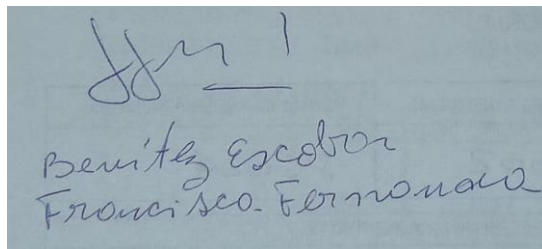 Benitez Escobar
Francisca Fernanda